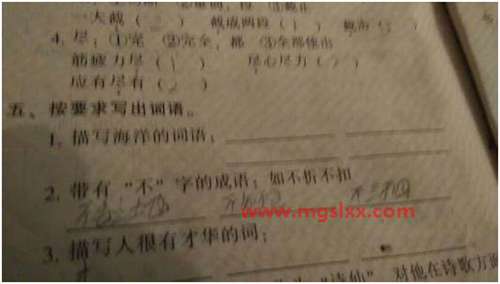 一大截（ ） 截成两段（1） 截
4. 尽：①完 ②完全，都 ③全部使出
筋疲力尽（1） 尽心尽力（2）
应有尽有（2）
五、按要求写出词语。
1. 描写海洋的词语：
2. 带有“不”字的成语：如不折不扣
www.mgslxx.com
3. 描写人很有才华的词：
“诗仙” 对他在诗歌方面